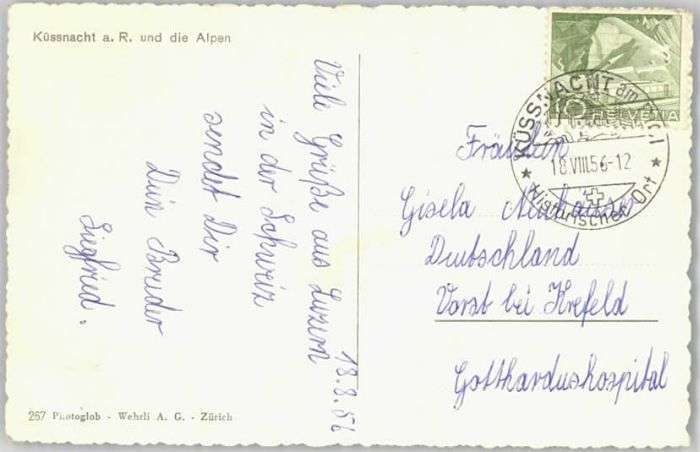 Küssnacht a. R. und die Alpen
Viele Grüße aus Luzern
in der Schweiz
sendet Dir
Dein Bruder
Siegfried.
18.8.56
267 Photoglob - Wehrli A. G. - Zürich
10 HELVETIA
KÜSSNACHT am RIGI
18.VIII.56-12
Historischer Ort
Fräulein
Gisela Neuhauser
Deutschland
Vorst bei Krefeld
Gotthardushospital